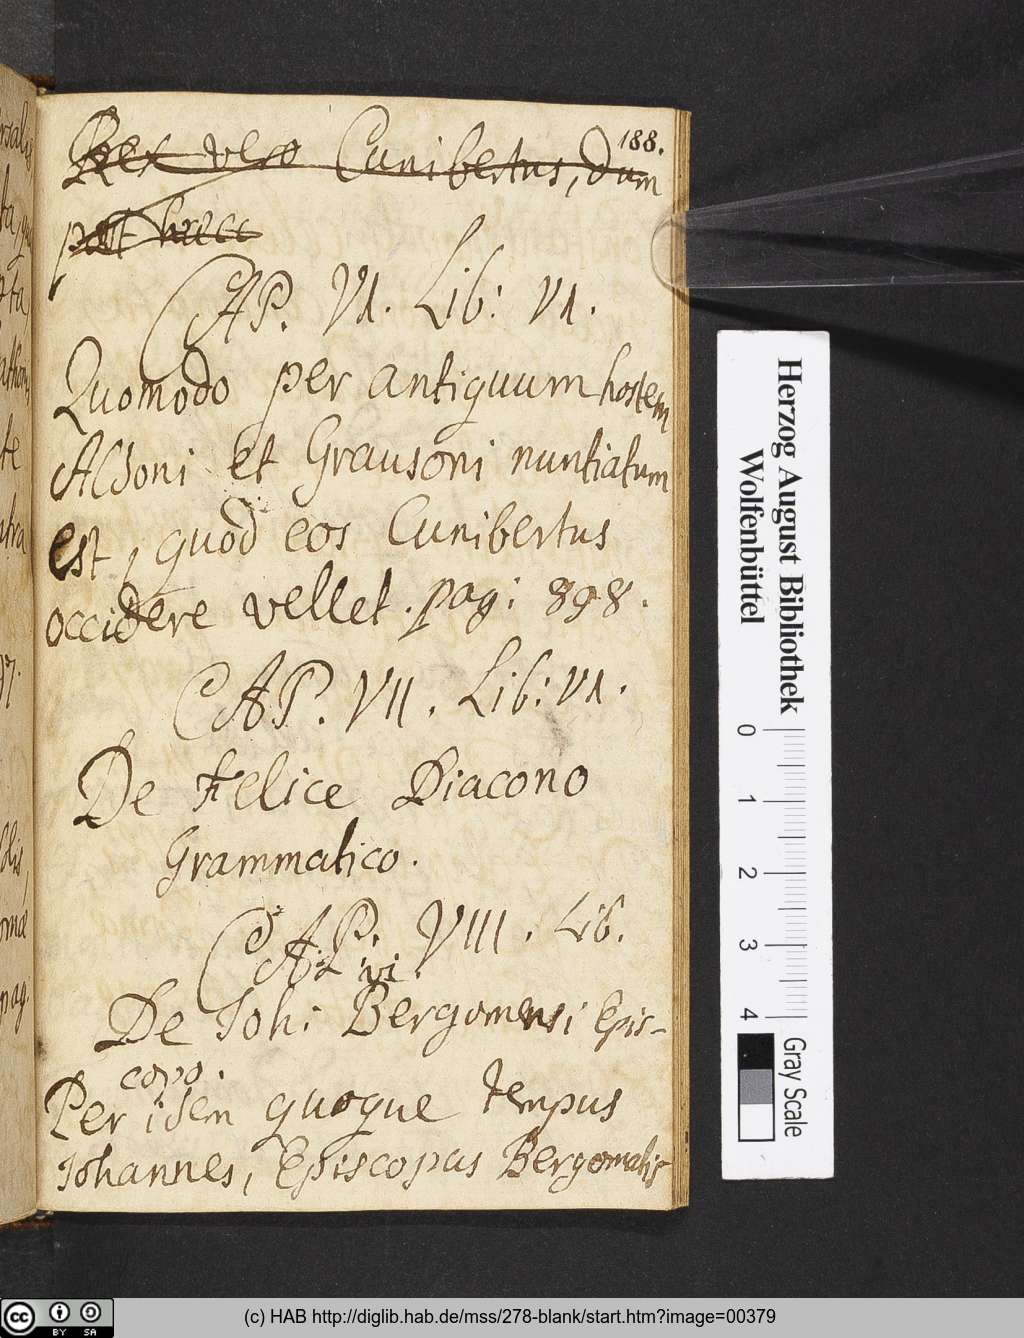 188.
Rex vero Cunibertus, dum
post haec
CAP. VI. Lib: VI.
Quomodo per antiquum hostem
Aldoni et Grausoni nuntiatum
est, quod eos Cunibertus
occidere vellet. pag: 898.
CAP. VII. Lib: VI.
De Felice Diacono
Grammatico.
CAP. VIII. Lib.
VI.
De Joh: Bergomensi Epis-
copo.
Per idem quoque tempus
Johannes, Episcopus Bergomatis
Herzog August Bibliothek
Wolfenbüttel
0 1 2 3 4
Gray Scale
cc BY SA
(c) HAB http://diglib.hab.de/mss/278-blank/start.htm?image=00379